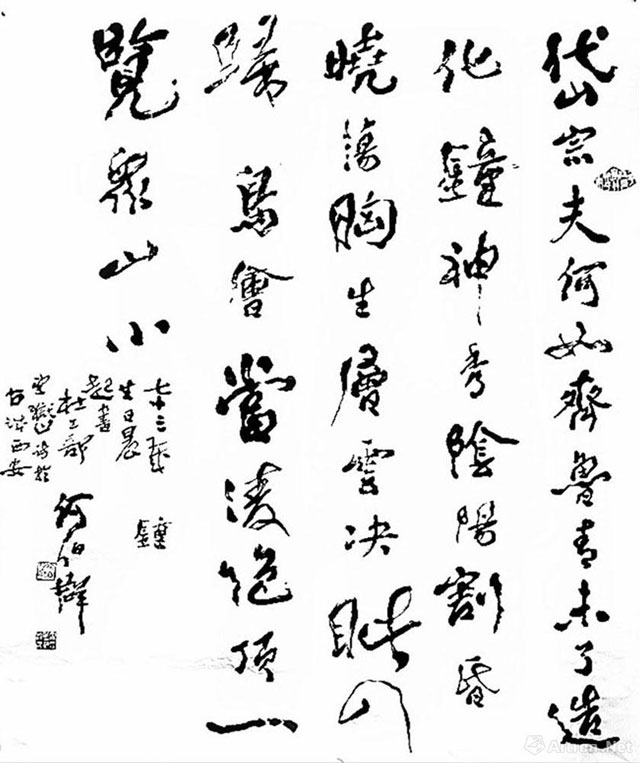 岱宗夫何如齊魯青未了造
化鐘神秀陰陽割昏
曉蕩胸生層雲决眦入
歸鳥會當凌絕頂一
覽眾山小
七十三歲
生日晨
鐘
起書
杜工部
望嶽詩於
古城西安
何伯群
Artron.Net